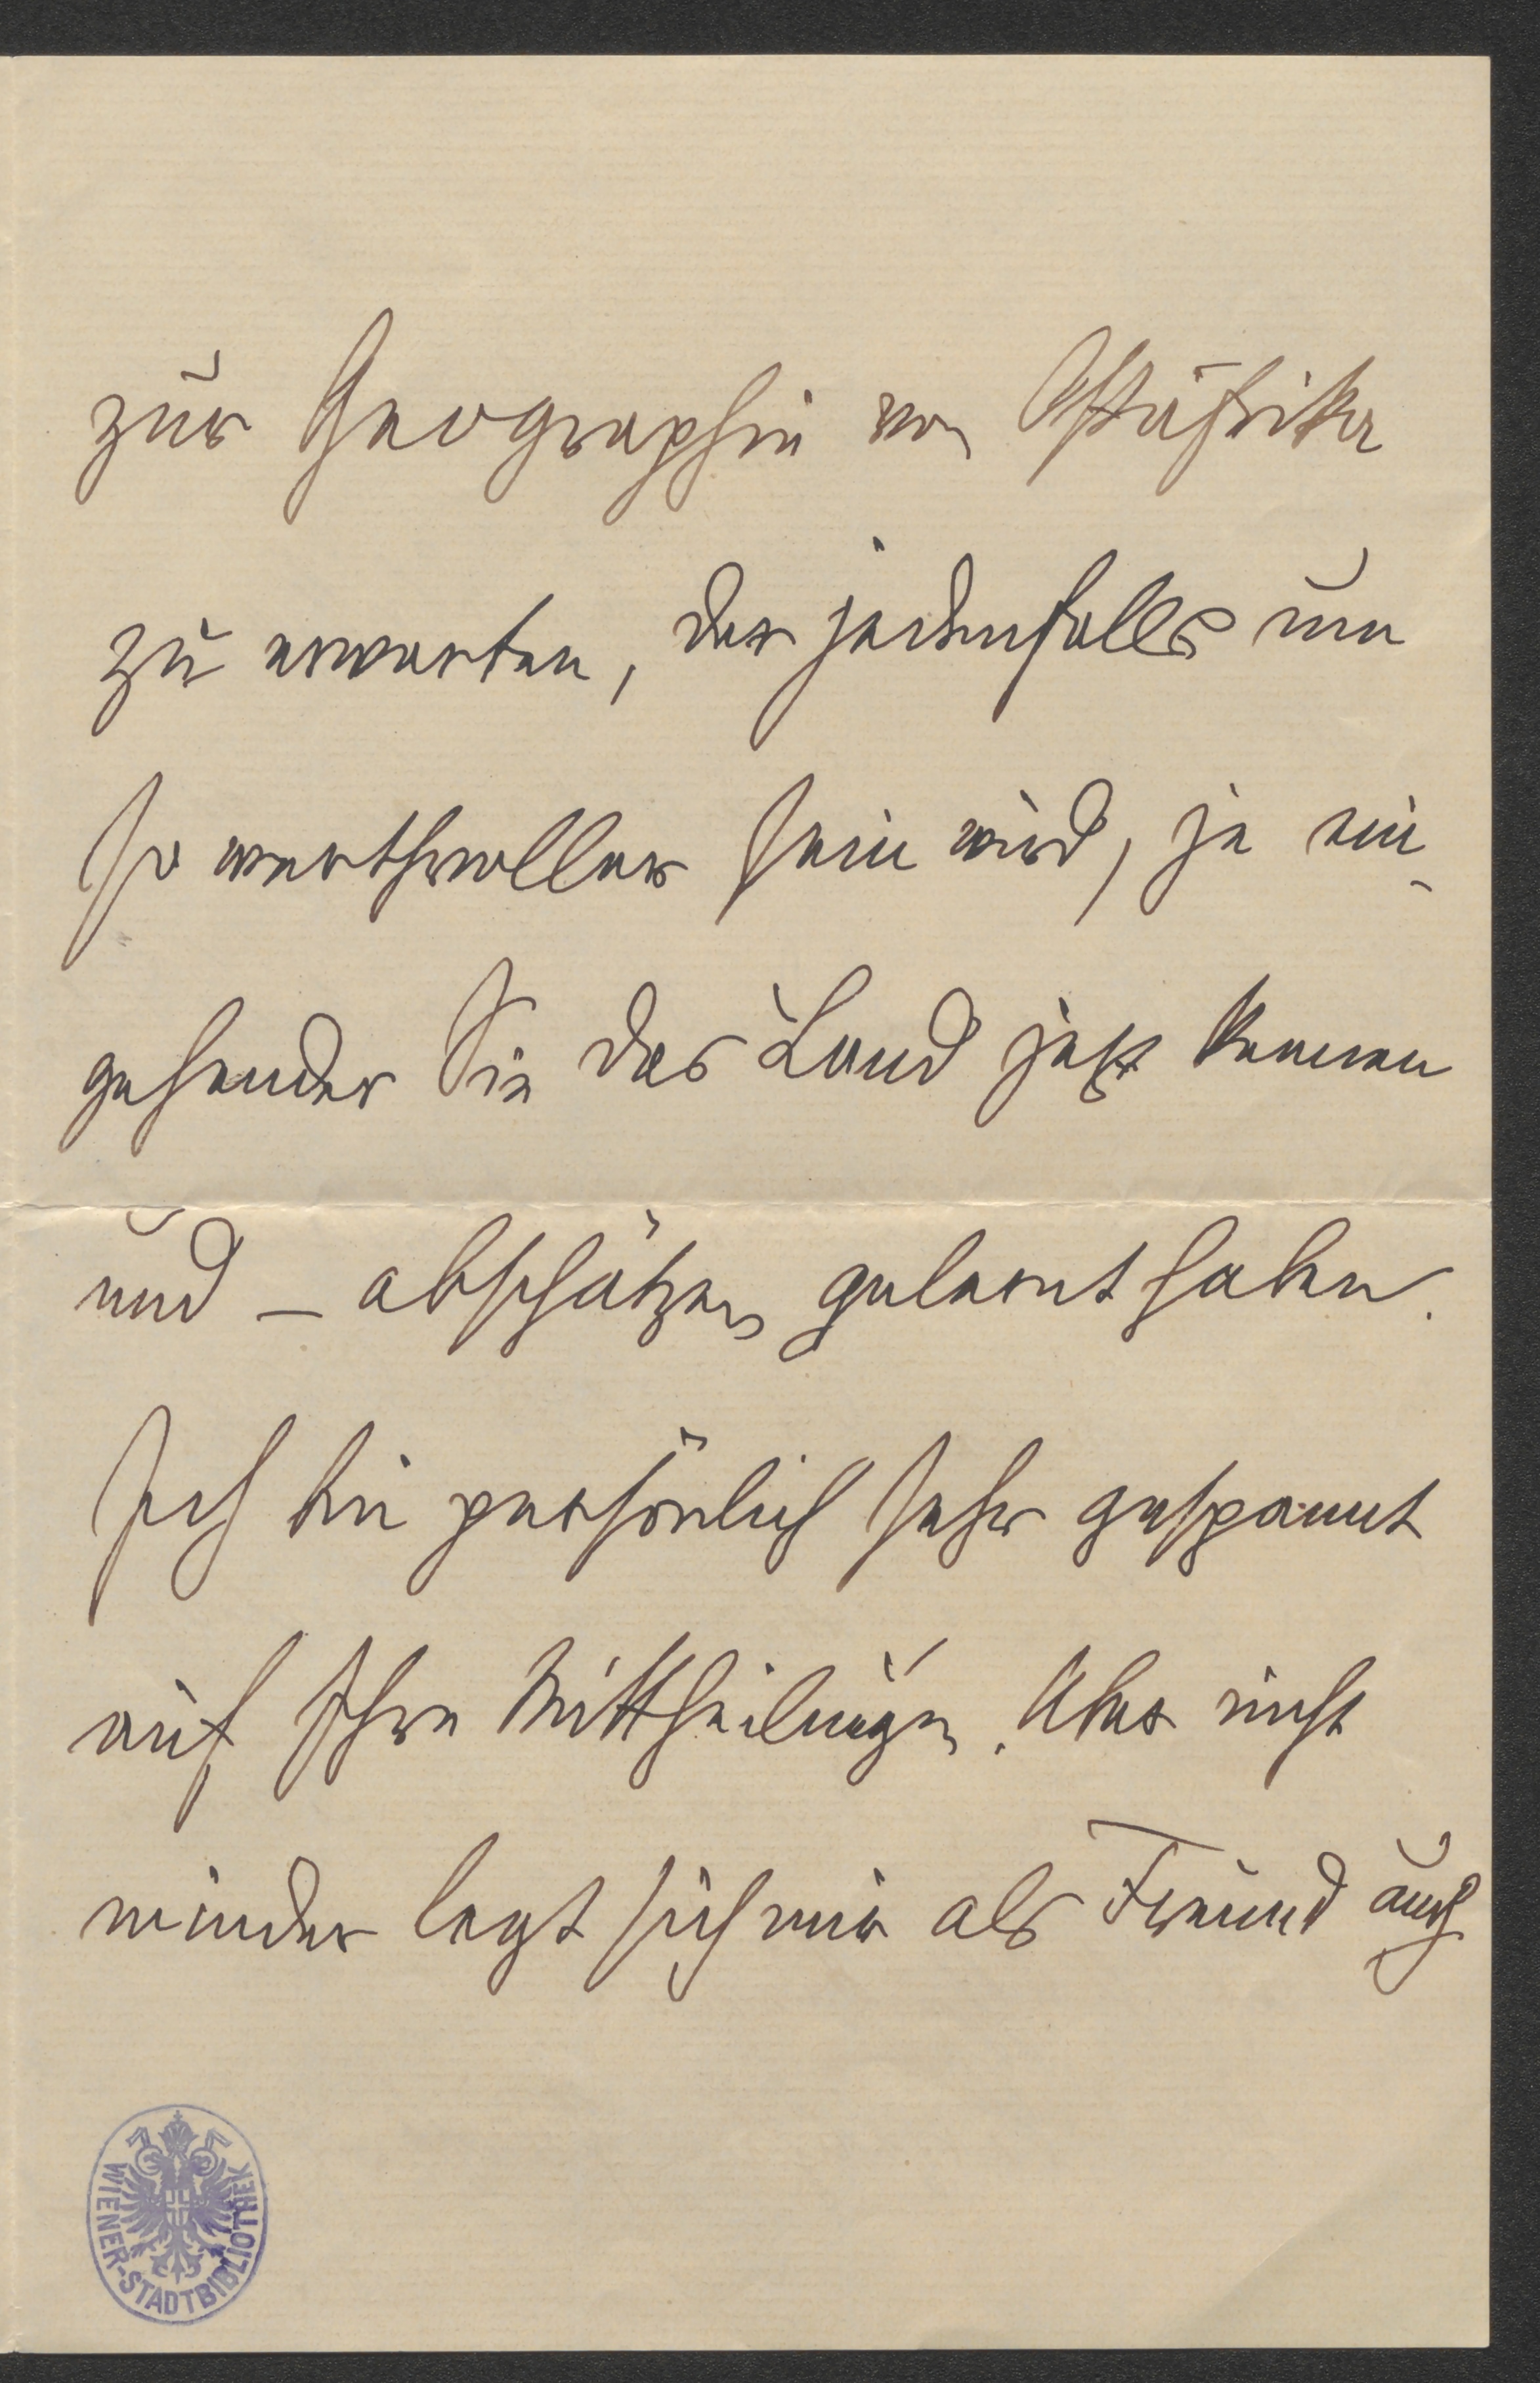 zur Geographie von Ostafrika
zu erwarten, der jedenfalls um
so werthvoller sein wird, je ein-
gehender Sie das Land jetzt kennen
und – abschätzen gelernt haben.
Ich bin persönlich sehr gespannt
auf Ihre Mittheilungen. Aber nicht
minder legt sich mir als Freund auch
WIENER-STADTBIBLIOTHEK